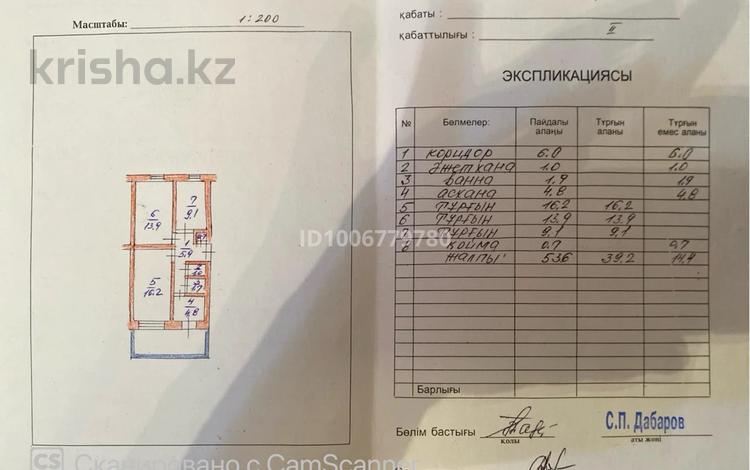 Масштабы: 1:200
krisha.kz
6
13,9
7
9,1
0,7
1
5,9
5
16,2
2
1,0
3
4
4,8
CS Сканировано с CamScanner
қабаты :
қабаттылығы : II
ЭКСПЛИКАЦИЯСЫ
№ Бөлмелер: Пайдалы алаңы Тұрғын аланы Тұрғын емес аланы
1 коридор 6.0 6.0
2 Әжетхана 1.0 1.0
3 Ванна 1.9 1.9
4 асхана 4.8 4.8
5 Тұрғын 16,2 16,2
6 Тұрғын 13,9 13,9
7 Тұрғын 9,1 9,1
8 қойма 0.7 0,7
жалпы: 53.6 39,2 14,4
Барлығы
ID1006779780
Бөлім бастығы С.П. Дабаров
қолы аты жөні